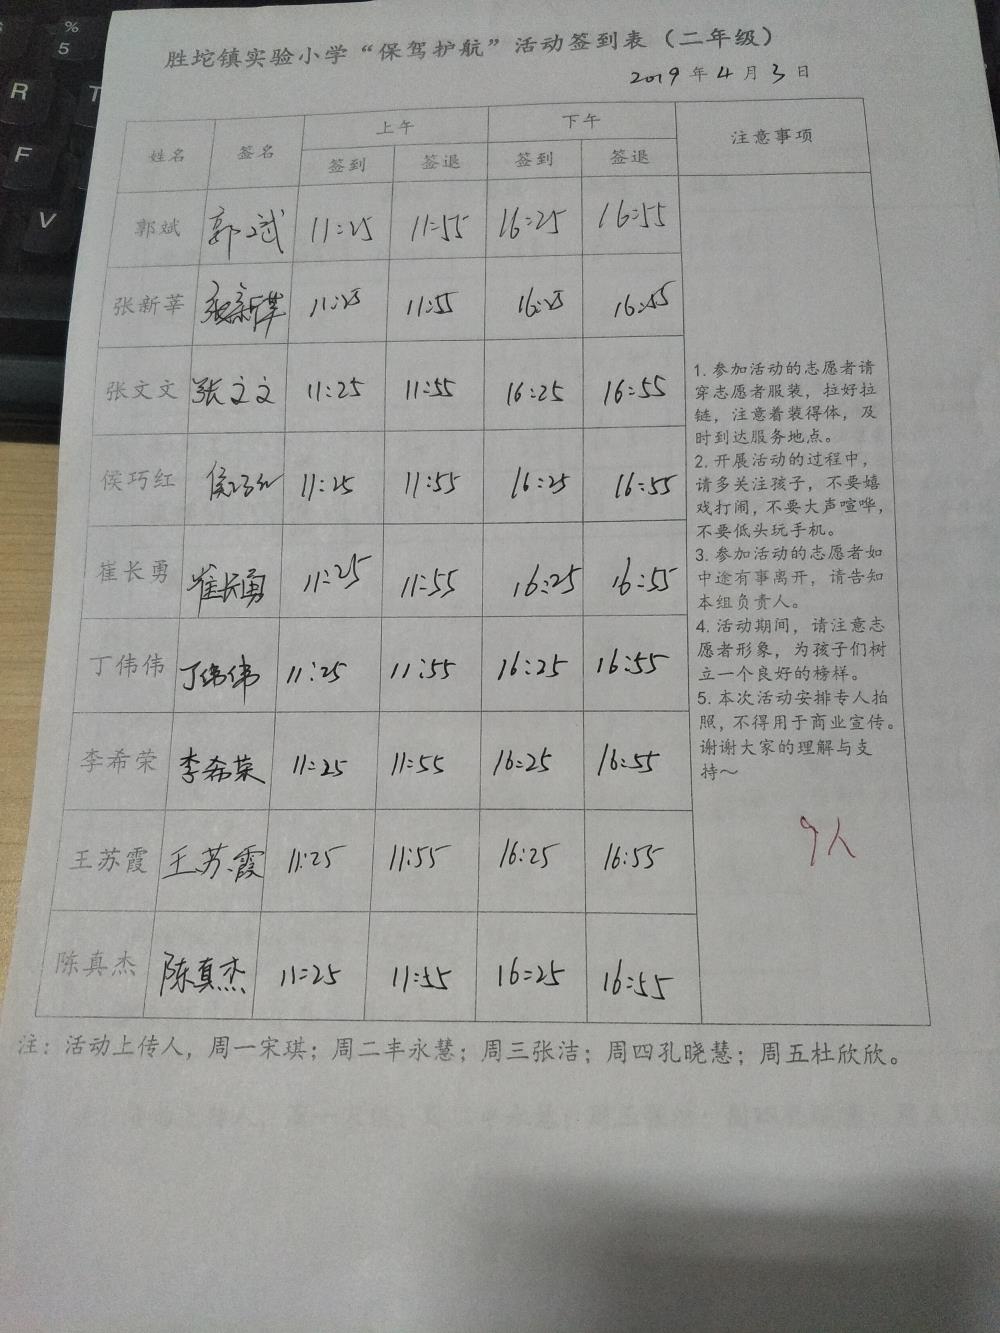 %
5
R
T
F
V
胜坨镇实验小学“保驾护航”活动签到表（二年级）
2019年4月3日
姓名 签名 上午 下午 注意事项
签到 签退 签到 签退
郭斌 郭斌 11:25 11:55 16:25 16:55
张新莘 张新莘 11:25 11:55 16:25 16:55
张文文 张文文 11:25 11:55 16:25 16:55
侯巧红 侯巧红 11:25 11:55 16:25 16:55
崔长勇 崔长勇 11:25 11:55 16:25 16:55
丁伟伟 丁伟伟 11:25 11:55 16:25 16:55
李希荣 李希荣 11:25 11:55 16:25 16:55
王苏霞 王苏霞 11:25 11:55 16:25 16:55
陈真杰 陈真杰 11:25 11:55 16:25 16:55
1. 参加活动的志愿者请
穿志愿者服装，拉好拉
链，注意着装得体，及
时到达服务地点。
2. 开展活动的过程中，
请多关注孩子，不要嬉
戏打闹，不要大声喧哗，
不要低头玩手机。
3. 参加活动的志愿者如
中途有事离开，请告知
本组负责人。
4. 活动期间，请注意志
愿者形象，为孩子们树
立一个良好的榜样。
5. 本次活动安排专人拍
照，不得用于商业宣传。
谢谢大家的理解与支
持～
9人
注：活动上传人，周一宋琪；周二丰永慧；周三张洁；周四孔晓慧；周五杜欣欣。